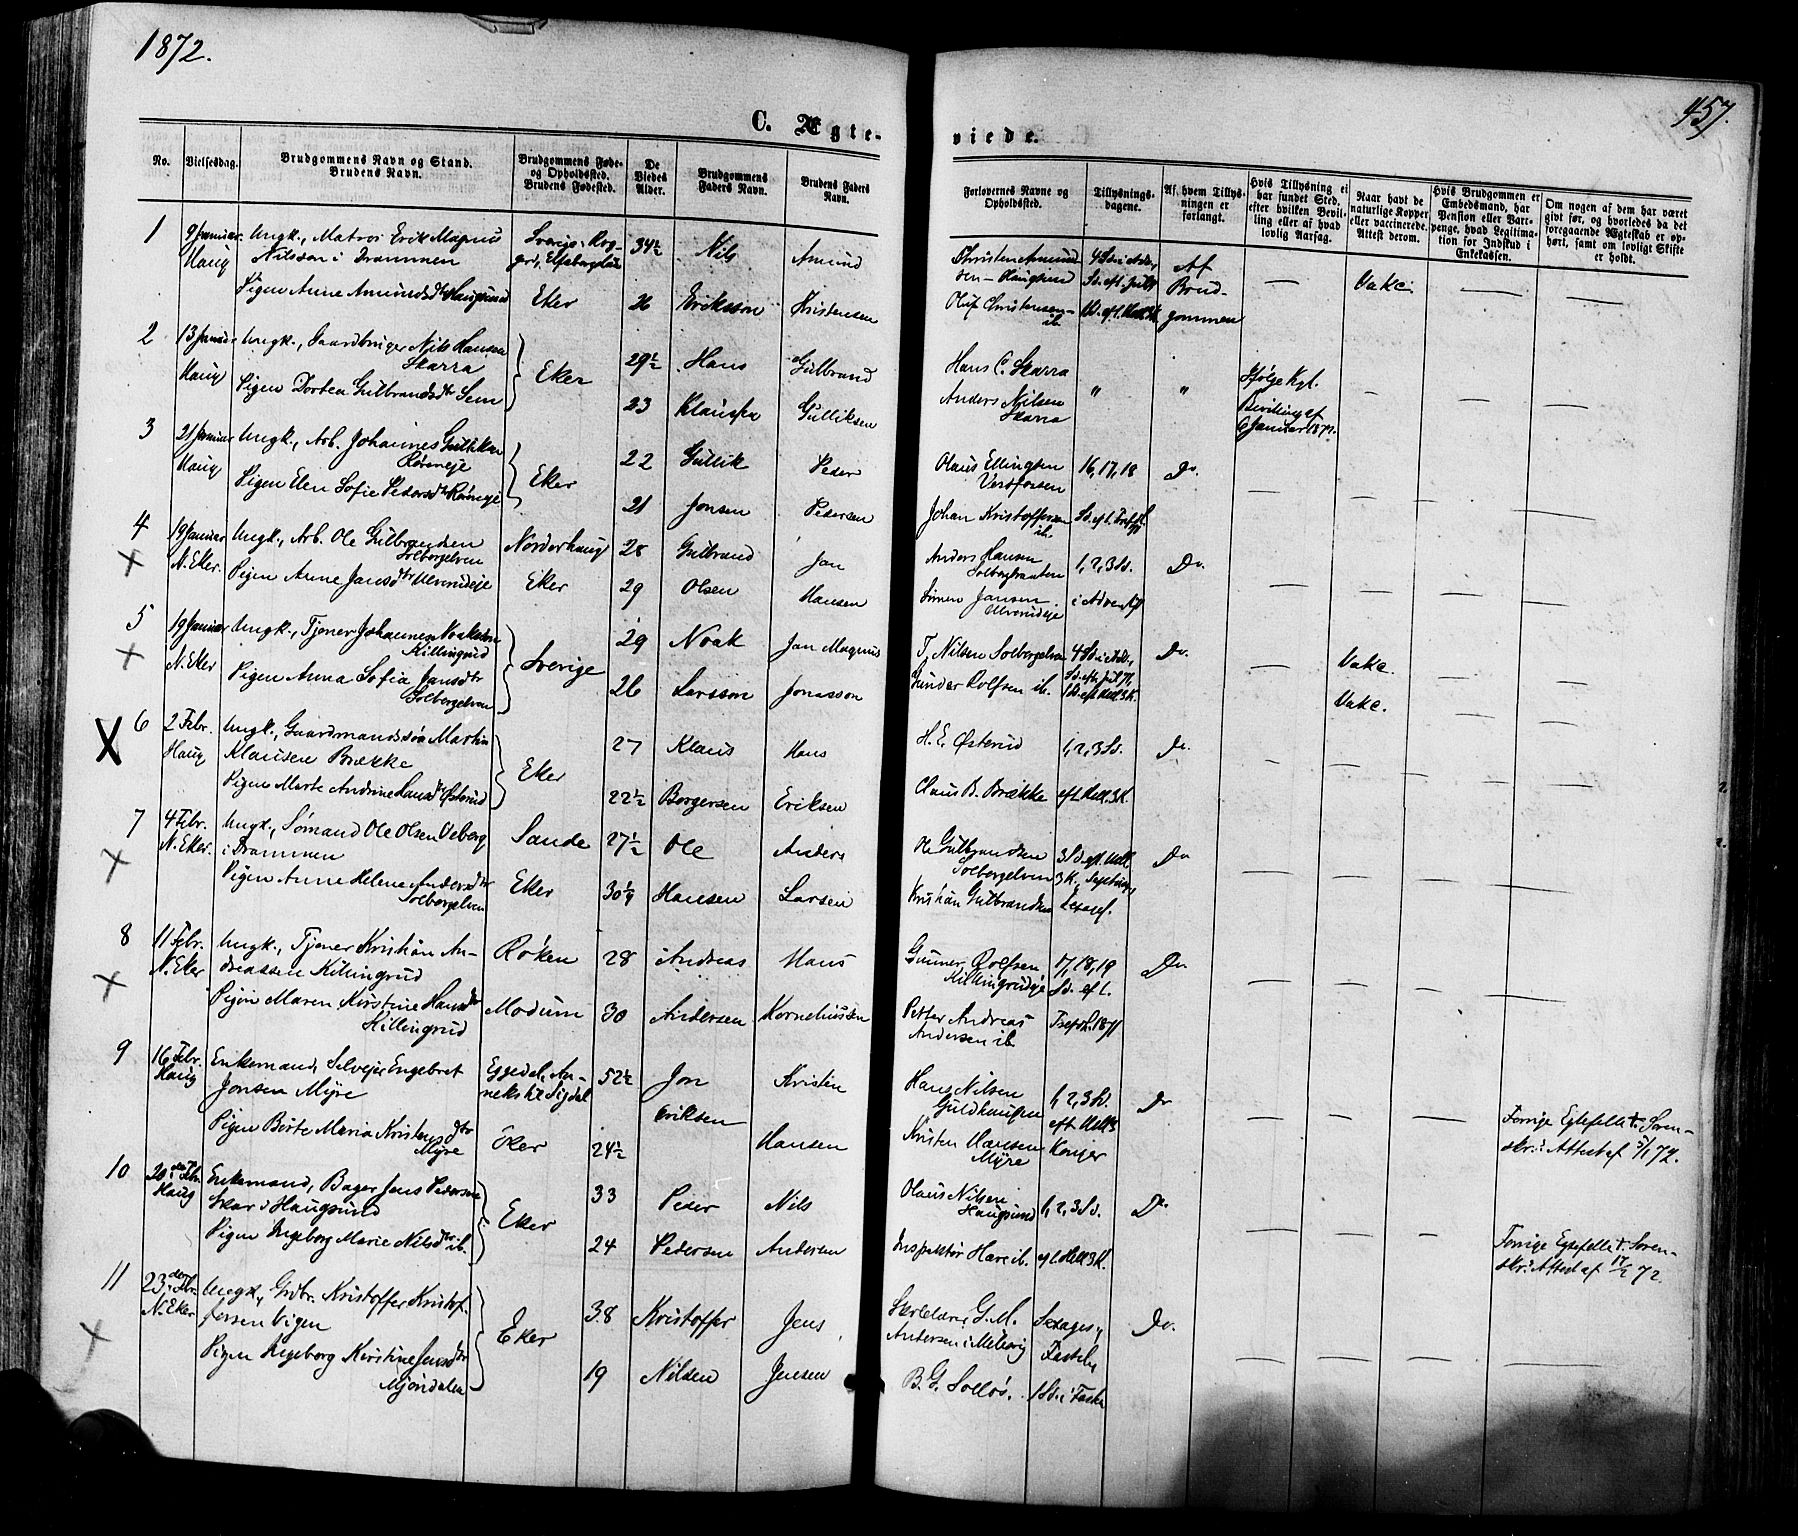 1872.
457.
C. Ægte-
viede.
No.
Vielsesdag.
Brudgommens Navn og Stand.
Brudens Navn.
Brudgommens Føde-
og Opholdssted.
Brudens Fødested.
De
Viedes
Alder.
Brudgommens
Faders Navn.
Brudens Faders
Navn.
Forlovernes Navne og
Opholdssted.
Tillysnings-
dagene.
Af hvem Tillys-
ningen er
forlangt.
Hvis Tillysning ei
har fundet Sted,
efter hvilken Bevil-
ling eller af hvad
lovlig Aarsag.
Naar havt de
naturlige Kopper
eller vaccinerede.
Attest derom.
Hvis Brudgommen er
Embedsmand, har
Pension eller Vart-
penge, hvad Legitima-
tion for Indskud i
Enkekassen.
Om nogen af dem har været
givt før, og hvorledes da det
foregaaende Ægteskab er op-
hørt, samt om lovligt Skifte
er holdt.
1
9 Januar
Haug
Ungk., Matros Erik Magnus
Nilsson i Drammen
Pigen Anne Amundsdtr Haugsund
Sverige,
Eker
34½
26
Nils
Eriksson
Amund
Kristensen
Christen Amund
sen Haugsund
Oluf Christensen
ib.
Af
Brud-
gommen
Vakc.
2
13 Januar
Haug
Ungk., Gaardbruger Nils Hansen
Skarra
Pigen Dortea Gulbrandsdtr Sem
Eker
29½
23
Hans
Klausen
Gulbrand
Gulliksen
Hans C. Skarra
Anders Nilsen
Skarra
"
"
Ifølge Kgl.
Bevilling af
6 Januar 1872.
3
21 Januar
Haug
Ungk., Arb. Johannes Gulliksen
Pigen Elen Sofie Pedersdtr
Eker
22
21
Gullik
Jonsen
Peder
Pedersen
Olaus Ellingsen
Vestfossen
Johan Kristoffersen
ib.
16, 17, 18
Do.
4
19 Januar
N. Eker.
Ungk., Arb. Ole Gulbrandsen
Solbergelven
Pigen Anne Jansdtr Ulverudeje
Norderhaug
Eker
28
29
Gulbrand
Olsen
Jan
Hansen
Anders Hansen
Simen Jansen
Ulverudeje
1, 2, 3 Sd.
i Advent
Do.
5
19 Januar
N. Eker
Ungk., Tjener Johannes Noaksson
Killingrud
Pigen Anna Sofia Jansdtr
Solbergelven
Sverige
29
26
Noak
Larsson
Jan Magnus
Jonasson
T. Nilsen Solbergelven
Gunder Rolfsen ib.
Do.
Vakc.
Vakc.
6
2 Febr.
Haug
Ungk., Gaardmandssøn Martin
Klausen Brække
Pigen Marte Andrine Hansdtr Østerud
Eker
27
22½
Klaus
Borgersen
Hans
Eriksen
H. E. Østerud
Claus B. Brække
1, 2, 3 Sd.
eft. Hell. 3 K.
Do.
7
4 Febr.
N. Eker.
Ungk., Sømand Ole Olsen Veberg
i Drammen
Pigen Anne Helene Andersdtr
Solbergelven
Sande
Eker
27½
30½
Ole
Hansen
Anders
Larsen
Ole Gulbrandsen
Solbergelven
Kristian Gulbrandsen
3 Sd. eft. Hell.
3 K.,
Do
8
11 Febr.
N. Eker
Ungk., Tjener Kristian An-
dreassen Killingrud
Pigen Maren Kirstine Hansdtr
Killingrud
Røken
Modum
28
30
Andreas
Andersen
Hans
Korneliussen
Gunner Rolfsen
Killingrudeje
Petter Andreas
Andersen ib.
17, 18, 19
Sd. eft.
Trefold. 1871
Do
9
16 Febr.
Haug
Enkemand, Selvejer Engebret
Jonsen Myre
Pigen Berte Maria Kristensdtr
Myre
Eggedal, An-
neks til Sigdal
Eker
52½
24½
Jon
Eriksen
Kristen
Hansen
Hans Nilsen
Guldhaugen
Kristen Hansen
Myre
1, 2, 3 Sd.
eft. Hell. 3
Konger
Do
Forrige Egtefelle † Soren-
skr.s Attest af 5/1 72.
10
20de Febr.
Haug
Enkemand, Bager Jens Pedersen
Skar i Haugsund
Pigen Ingeborg Marie Nilsdtr ib.
Eker
33
24
Peder
Pedersen
Nils
Andersen
Olaus Nilsen
Haugsund
Inspektør Hare ib.
1, 2, 3 Sd.
eft. Hell. 3 K.
Do.
Forrige Egtefelle †. Soren-
skr.s Attest af 17/2 72.
11
23de Febr.
N. Eker
Ungk., Grdbr. Kristoffer Kristof-
fersen Vigen
Pigen Ingeborg Kirstine Jensdtr
Mjøndalen
Eker
38
19
Kristoffer
Nilsen
Jens
Jensen
G. M.
Andersen i
B. G. Solbø.
Sexages.,
Fastel.,
1 Sd. i Faste
Do.